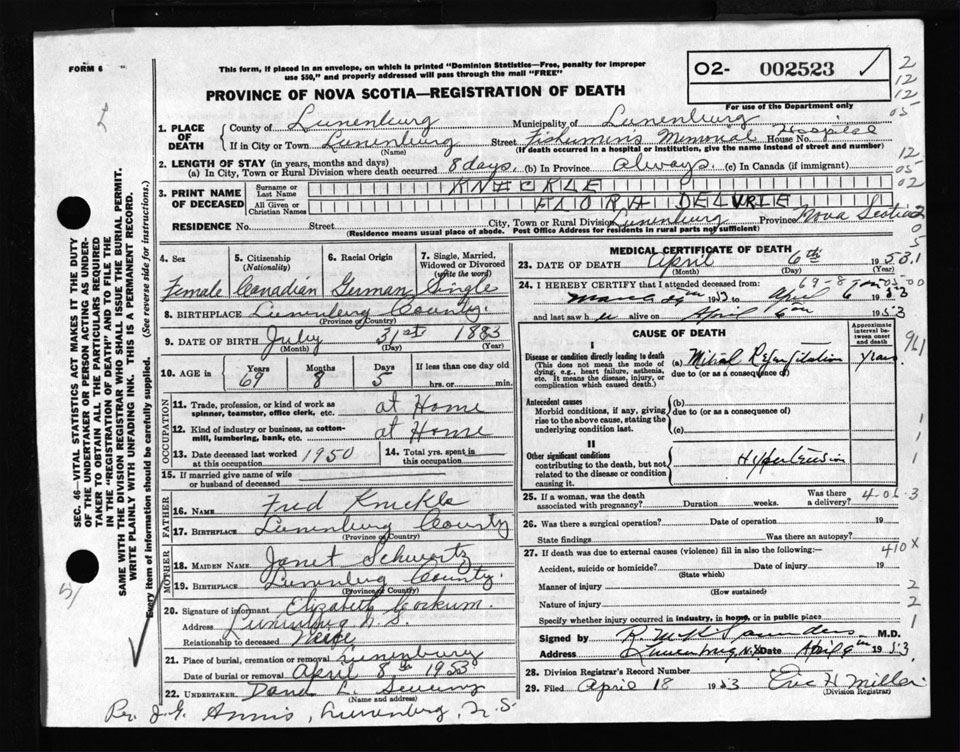 FORM 6
This form, if placed in an envelope, on which is printed "Dominion Statistics—Free, penalty for improper
use $50," and properly addressed will pass through the mail "FREE"
O2- 002523 ✓
For use of the Department only
PROVINCE OF NOVA SCOTIA—REGISTRATION OF DEATH
1. PLACE OF DEATH
County of Lunenburg Municipality of Lunenburg
If in City or Town Lunenburg Street Fishermens Memorial Hospital House No.
(Name) (If death occurred in a hospital or institution, give the name instead of street and number)
2. LENGTH OF STAY (in years, months and days)
(a) In City, Town or Rural Division where death occurred 8 days. (b) In Province always. (c) In Canada (if immigrant)
3. PRINT NAME OF DECEASED
Surname or Last Name KNICKLE
All Given or Christian Names FLORA
RESIDENCE No. Street City, Town or Rural Division Lunenburg Province Nova Scotia
(Residence means usual place of abode. Post Office Address for residents in rural parts not sufficient)
SEC. 46—VITAL STATISTICS ACT MAKES IT THE DUTY
OF THE UNDERTAKER OR PERSON ACTING AS UNDER-
TAKER TO OBTAIN ALL THE PARTICULARS REQUIRED
IN THE "REGISTRATION OF DEATH" AND TO FILE THE
SAME WITH THE DIVISION REGISTRAR WHO SHALL ISSUE THE BURIAL PERMIT.
WRITE PLAINLY WITH UNFADING INK. THIS IS A PERMANENT RECORD.
Every item of information should be carefully supplied. (See reverse side for instructions.)
4. Sex Female
5. Citizenship (Nationality) Canadian
6. Racial Origin German
7. Single, Married, Widowed or Divorced (write the word) Single
8. BIRTHPLACE Lunenburg County.
(Province or County)
9. DATE OF BIRTH July 31st 1883
(Month) (Day) (Year)
10. AGE in Years 69 Months 8 Days 5 If less than one day hrs. or min.
OCCUPATION
11. Trade, profession, or kind of work as
spinner, teamster, office clerk, etc. at Home
12. Kind of industry or business, as cotton-
mill, lumbering, bank, etc. at Home
13. Date deceased last worked at this occupation 1950
14. Total yrs. spent in this occupation
15. If married give name of wife or husband of deceased
FATHER
16. NAME Fred Knickle
17. BIRTHPLACE Lunenburg County
(Province or County)
MOTHER
18. MAIDEN NAME Janet Schwartz
19. BIRTHPLACE Lunenburg County.
(Province or County)
20. Signature of informant Elizabeth Corkum.
Address Lunenburg N.S.
Relationship to deceased Neice
21. Place of burial, cremation or removal Lunenburg
Date of burial or removal April 8th 1953
22. UNDERTAKER
(Name and address)
Per. J.G. Annis, Lunenburg, N.S.
MEDICAL CERTIFICATE OF DEATH
23. DATE OF DEATH April 6th 1953
(Month) (Day) (Year)
24. I HEREBY CERTIFY that I attended deceased from:
1953 to April 6 1953
and last saw h alive on April 6 1953
CAUSE OF DEATH
Approximate interval between onset and death
I
Disease or condition directly leading to death
(This does not mean the mode of
dying, e.g., heart failure, asthenia,
etc. It means the disease, injury, or
complication which caused death.)
(a) Mitral Regurgitation years
due to (or as a consequence of)
Antecedent causes
Morbid conditions, if any, giving
rise to the above cause, stating the
underlying condition last.
(b)
due to (or as a consequence of)
(c)
II
Other significant conditions
contributing to the death, but not
related to the disease or condition
causing it.
Hypertension
25. If a woman, was the death
associated with pregnancy? Duration weeks. Was there a delivery?
26. Was there a surgical operation? Date of operation 19
State findings Was there an autopsy?
27. If death was due to external causes (violence) fill in also the following:— 410X
Accident, suicide or homicide? Date of injury 19
(State which)
Manner of injury
(How sustained)
Nature of injury
Specify whether injury occurred in industry, in home, or in public place
Signed by Saunders M.D.
Address Lunenburg, N.S. Date April 9th 1953
28. Division Registrar's Record Number
29. Filed April 18 1953 Eric H Miller.
(Division Registrar)